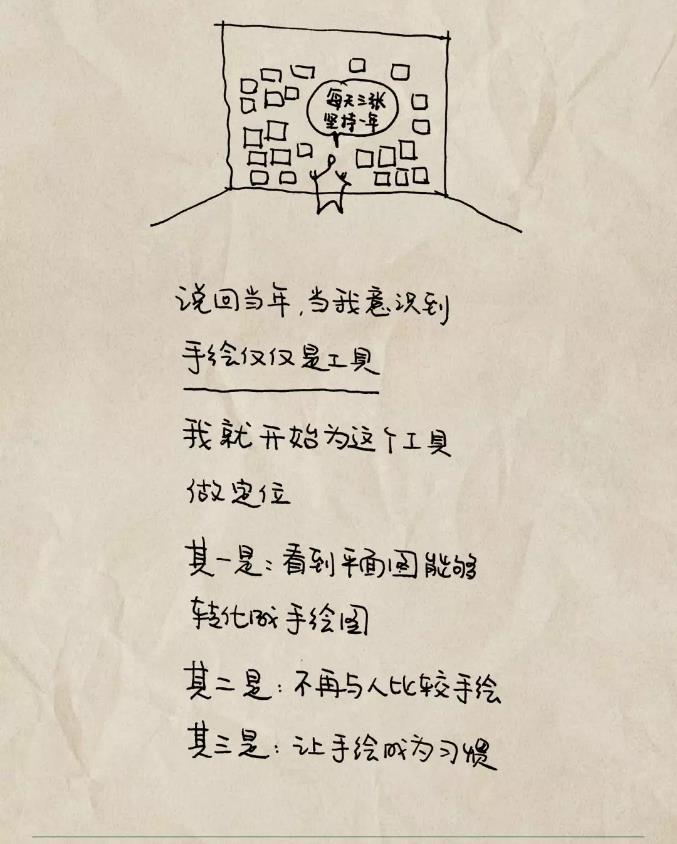 每天三张
坚持一年
说回当年,当我意识到
手绘仅仅是工具
我就开始为这个工具
做定位
其一是:看到平面图能够
转化成手绘图
其二是:不再与人比较手绘
其三是:让手绘成为习惯